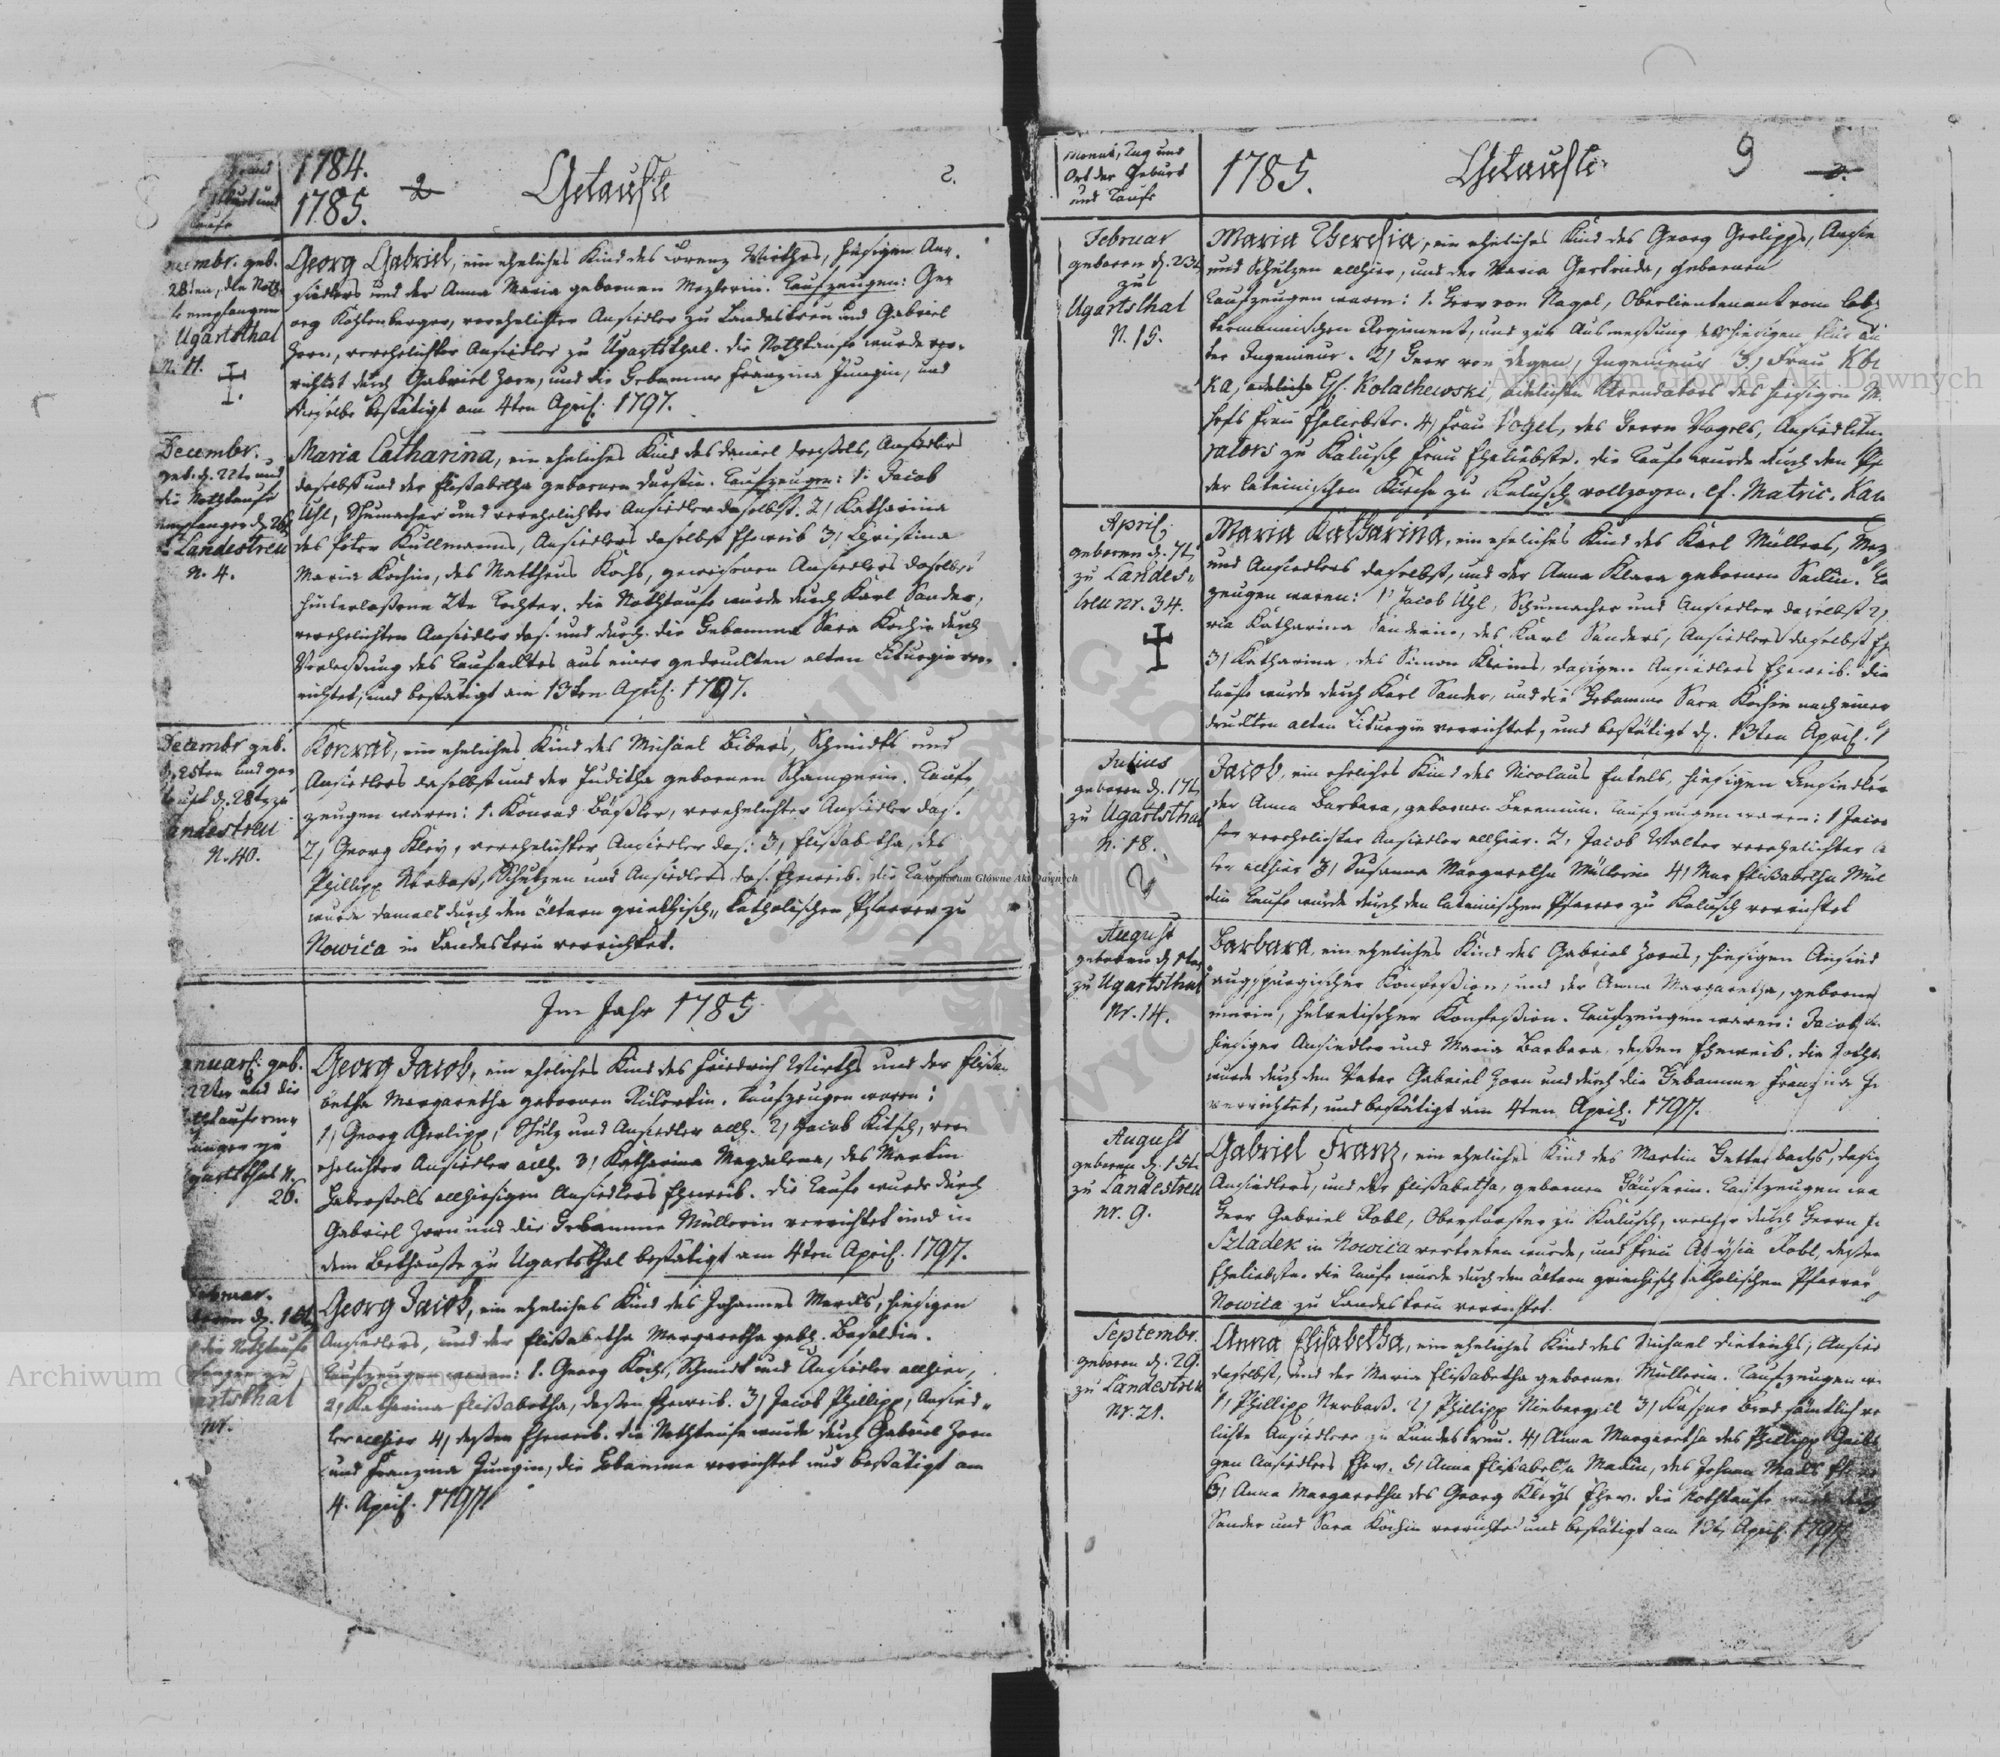 1784.
1785.
2
Getaufte
2.
Decembr. geb.
28ten, die Noth-
empfangen
Ugartsthal
N. 11.
Georg Gabriel, ein eheliches Kind des Lorenz Wirthes, hiesigen An-
siedlers und der Anna Maria gebornen Mezlerin. Taufzeugen: Ge-
org Kohlenberger, verehelichter Ansiedler zu Landestreu und Gabriel
Zorn, verehelichter Ansiedler zu Ugartsthal. die Nothtaufe wurde ver-
richtet durch Gabriel Zorn, und die Hebamme Franzina Jungin, und
dieselbe bestätigt am 4ten April. 1797.
Decembr.
geb. d. 22t. und
die Nothtaufe
empfangen d. 26
Landestreu
N. 4.
Maria Catharina, ein eheliches Kind des Daniel Ansiedlers
daselbst und der Elisabetha gebornen Taufzeugen: 1. Jacob
Uhl, Schumacher und verehelichter Ansiedler daselbst. 2, Katharina
des Peter Kullmanns, Ansiedlers daselbst Eheweib 3, Christina
Maria Kochin, des Mattheus Kochs, gewesenen Ansiedlers daselbst
hinterlaßene 2te Tochter. die Nothtaufe wurde durch Karl Sander,
verehelichten Ansiedler das. und durch die Hebamme Sara Kochin durch
Verleßung des Taufacktes aus einer gedruckten alten Liturgie ver-
richtet, und bestätigt am 13ten April. 1797.
Decembr geb.
d. 25ten und ge-
tauft d. 28t. zu
Landestreu
N. 40.
Konrad, ein eheliches Kind des Michael Bibers, Schmidts und
Ansiedlers daselbst und der Juditha gebornen Taufz
zeugen waren: 1. Konrad Bäßler, verehelichter Ansiedler das.
2, Georg Kley, verehelichter Ansiedler das. 3, Elisabetha, des
Phillipp Nerbaß, Schulzen und Ansiedlers das. Eheweib. die Taufe
wurde damals durch den ältern griechisch-katholischen Pfarrer zu
Nowica in Landestreu verrichtet.
Im Jahr 1785
Januar. geb.
22ten und die
Nothtauf em-
pfangen zu
Ugartsthal N.
26.
Georg Jacob, ein eheliches Kind des Friedrich Wirths und der Elisa-
betha Margaretha gebornen Taufzeugen waren:
1, Georg Gerlipp, Schulz und Ansiedler allh. 2, Jacob Kitsch, ver-
ehelichter Ansiedler allh. 3, Katharina Magdalena, des Martin
Haberstols allhiesigen Ansiedlers Eheweib. die Taufe wurde durch
Gabriel Zorn und die Hebamme Müllerin verrichtet und in
dem Bethause zu Ugartsthal bestätigt am 4ten April. 1797.
Februar.
geboren d.
die Nothtaufe
Ugartsthal
Nr.
Georg Jacob, ein eheliches Kind des Johannes hiesigen
Ansiedlers, und der Elisabetha Margaretha geb.
Taufzeugen waren: 1. Georg Koch, Schmidt und Ansiedler allhier,
2, Katharina Elisabetha, deßen Eheweib. 3, Jacob Phillipp, Ansied-
ler allhier 4, deßen Eheweib. die Nothtaufe wurde durch Gabriel Zorn
und Franzina Jungin, die Hebamme verrichtet und bestätigt am
4. April. 1797.
Monat, Tag und
Ort der Geburt
und Taufe
1785.
Getaufte
9
Februar
geboren d. 23t.
zu
Ugartsthal
N. 15.
Maria Theresia, ein eheliches Kind des Georg Gerlipps, Ansie
und Schulzen allhier, und der Maria Gertruda, gebornen
Taufzeugen waren: 1. Herr von Nagel, Oberlieutenant vom
Regiment, und zur Ausmeßung des hiesigen
ter Ingenieur. 2, Herr von Degen, Ingenieur 3, Frau
ka, H. Kolachewski, Arendators des hiesigen
hofs Frau Eheliebste. 4, Frau Vogel, des Herrn Vogels,
rators zu Kalusch Frau Eheliebste. die Taufe wurde durch den Pf
der lateinischen Kirche zu Kalusch vollzogen. cf. Matric. Kal
April.
geboren d. 7t.
zu Landes-
treu nr. 34.
Maria Katharina, ein eheliches Kind des Karl Müllers,
und Ansiedlers daselbst, und der Anna Klara gebornen
zeugen waren: 1, Jacob Uhl, Schumacher und Ansiedler daselbst 2,
ria Katharina Sanderin, des Karl Sanders, Ansiedlers daselbst Eh
3, Katharina, des Simon Kleins, dasigen Ansiedlers Eheweib. die
taufe wurde durch Karl Sander, und die Hebamme Sara Kochin nach einer
druckten alten Liturgie verrichtet, und bestätigt d. 13ten April. 1
Julius
geboren d. 17t.
zu Ugartsthal
N. 18.
Jacob, ein eheliches Kind des Nicolaus hiesigen Ansiedlers
der Anna Barbara, gebornen Taufzeugen waren: 1 Jacob
verehelichter Ansiedler allhier. 2, Jacob Walter verehelichter
ler allhier 3, Susanna Margaretha Müllerin 4, Mar Elisabetha Mül
die Taufe wurde durch den lateinischen Pfarrer zu Kalusch verrichtet
August
geboren d.
zu Ugartsthal
Nr. 14.
Barbara, ein eheliches Kind des Gabriel Zorns, hiesigen Ansied
augspurgischer Konfeßion, und der Anna Margaretha, geborne
helvetischer Konfeßion. Taufzeugen waren: Jacob
hiesiger Ansiedler und Maria Barbara deßen Eheweib. die Noth
wurde durch den Vater Gabriel Zorn und durch die Hebamme Franzina J
verrichtet, und bestätigt am 4ten April. 1797.
August
geboren d. 15t.
zu Landestreu
nr. 9.
Gabriel Franz, ein eheliches Kind des Martin dasig
Ansiedlers, und der Elisabetha, gebornen Taufzeugen wa
Herr Gabriel Robl, Oberförster zu Kalusch, welcher durch Herrn
Szladek in Nowica vertreten wurde, und Frau Robl, deßen
Eheliebste. die Taufe wurde durch den ältern griechisch katholischen Pfarrer
Nowica zu Landestreu verrichtet.
Septembr.
geboren d. 29.
zu Landestreu
Nr. 21.
Anna Elisabetha, ein eheliches Kind des Michael Dietrichs, Ansied
daselbst, und der Maria Elisabetha geborne Müllerin. Taufzeugen w
1, Phillipp Nerbaß. 2, Phillipp Niebergall 3, Kaspar sämtlich ve
lichte Ansiedler zu Landestreu. 4, Anna Margaretha des Phillipp
gen Ansiedlers Ehew. 5, Anna Elisabetha des Johann
6, Anna Margaretha des Georg Kleys Ehew. die Nothtaufe wurde durch
Sander und Sara Kochin verrichtet und bestätigt am 13t. April. 1797
Archiwum Główne Akt Dawnych
Archiwum Główne Akt Dawnych
Archiwum Główne Akt Dawnych